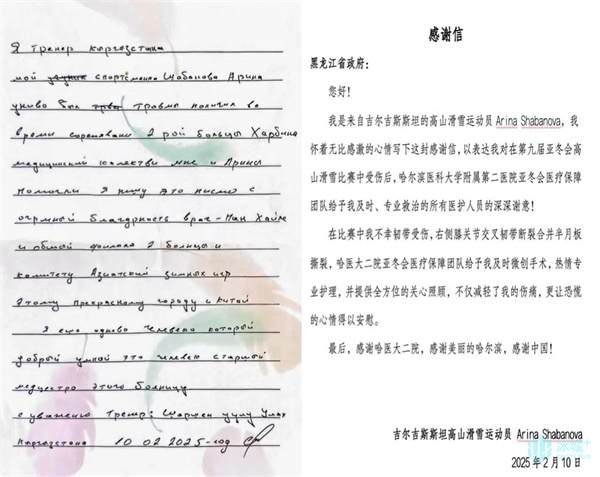 Я Тренер Кыргызстана
мой спортсменка Шабанова Арина
была травма получил во
время соревнований 2 рой больцы Харбина
медицинский мне и Арины
помогли Я пишу это письмо с
огромной благодрность врач-Ман Хайм
и общий филиала 2 больцы и
комитету Азиатский зимних игр
Этому прекрасному городу и Китой
Я ещо одного человека который
добрый умной это человек старшой
медцестра этого больницу
с уважению Тренер: Улах
Кыргызстана 10 02 2025-год
感谢信
黑龙江省政府：
您好！
我是来自吉尔吉斯斯坦的高山滑雪运动员 Arina Shabanova，我
怀着无比感激的心情写下这封感谢信，以表达我对在第九届亚冬会高
山滑雪比赛中受伤后，哈尔滨医科大学附属第二医院亚冬会医疗保障
团队给予我及时、专业救治的所有医护人员的深深谢意！
在比赛中我不幸韧带受伤，右侧膝关节交叉韧带断裂合并半月板
撕裂，哈医大二院亚冬会医疗保障团队给予我及时微创手术，热情专
业护理，并提供全方位的关心照顾，不仅减轻了我的伤痛，更让恐慌
的心情得以安慰。
最后，感谢哈医大二院，感谢美丽的哈尔滨，感谢中国！
吉尔吉斯斯坦高山滑雪运动员 Arina Shabanova
2025 年 2 月 10 日
冰城+